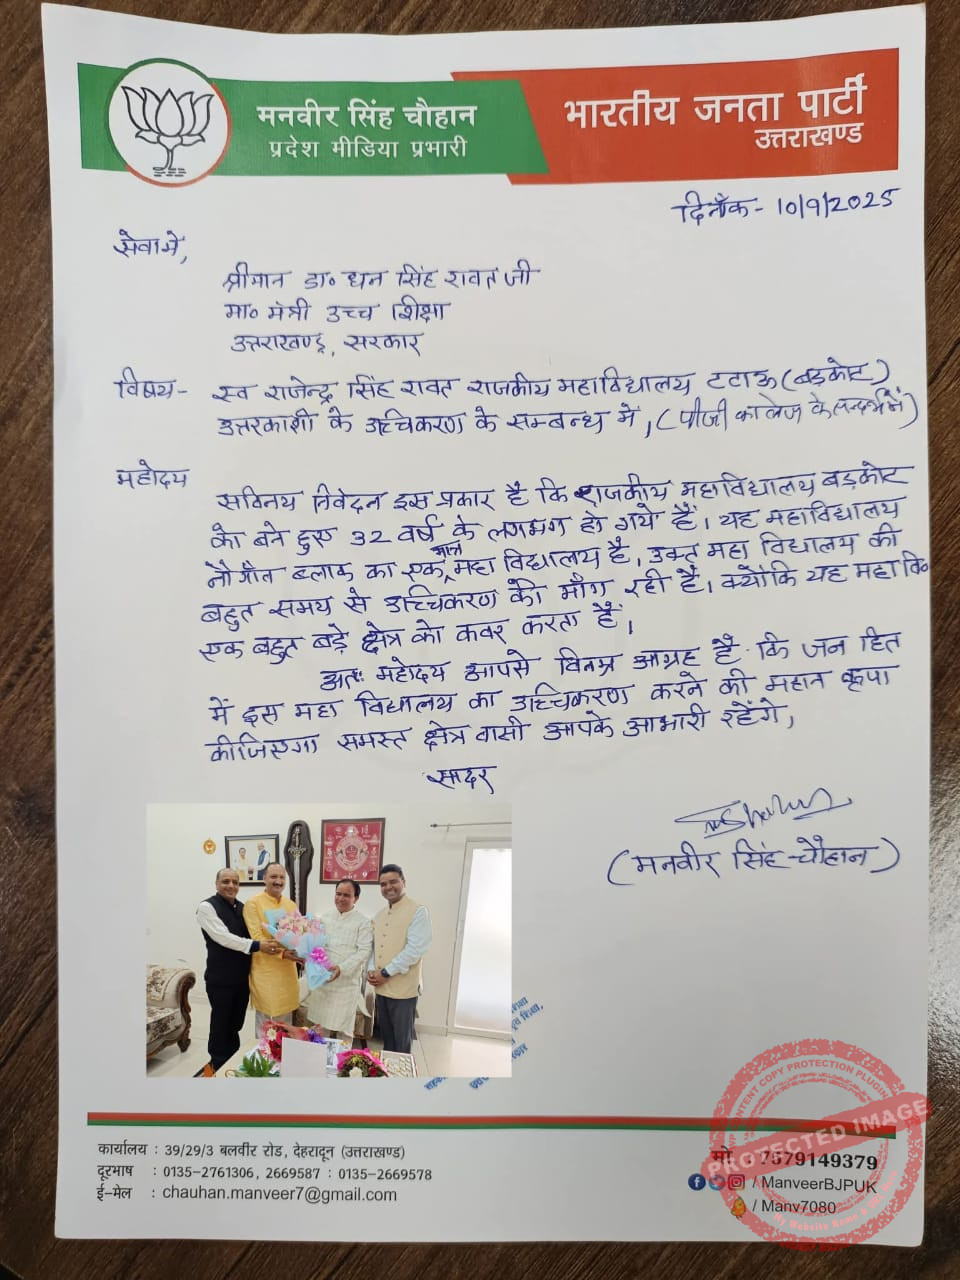 मनवीर सिंह चौहान
प्रदेश मीडिया प्रभारी
भारतीय जनता पार्टी
उत्तराखण्ड
दिनाँक- 10/9/2025
सेवा मे,
श्रीमान डा० धन सिंह रावत जी
मा० मंत्री उच्च शिक्षा
उत्तराखण्ड, सरकार
विषय- स्व राजेन्द्र सिंह रावत राजकीय महाविद्यालय टटाऊ (बड़कोट)
उत्तरकाशी के उच्चिकरण के सम्बन्ध मे, (पीजी कालेज के सन्दर्भ में)
महोदय
सविनय निवेदन इस प्रकार है कि राजकीय महाविद्यालय बड़कोट
को बने हुए 32 वर्ष के लगभग हो गये हैं। यह महाविद्यालय
नौगाँव ब्लाक का एक मात्र महा विद्यालय है, उक्त महा विद्यालय की
बहुत समय से उच्चिकरण की माँग रही है। क्योंकि यह महावि०
एक बहुत बड़े क्षेत्र को कवर करता है।
अतः महोदय आपसे विनम्र आग्रह है कि जन हित
में इस महा विद्यालय का उच्चिकरण करने की महान कृपा
कीजिएगा समस्त क्षेत्र वासी आपके आभारी रहेंगे,
सादर
(मनवीर सिंह चौहान)
कार्यालय : 39/29/3 बलवीर रोड, देहरादून (उत्तराखण्ड)
दूरभाष : 0135-2761306, 2669587 : 0135-2669578
ई-मेल : chauhan.manveer7@gmail.com
मो. : 7579149379
/ ManveerBJPUK
/ Manv7080
WP CONTENT COPY PROTECTION PLUGIN
PROTECTED IMAGE
My Website Name &